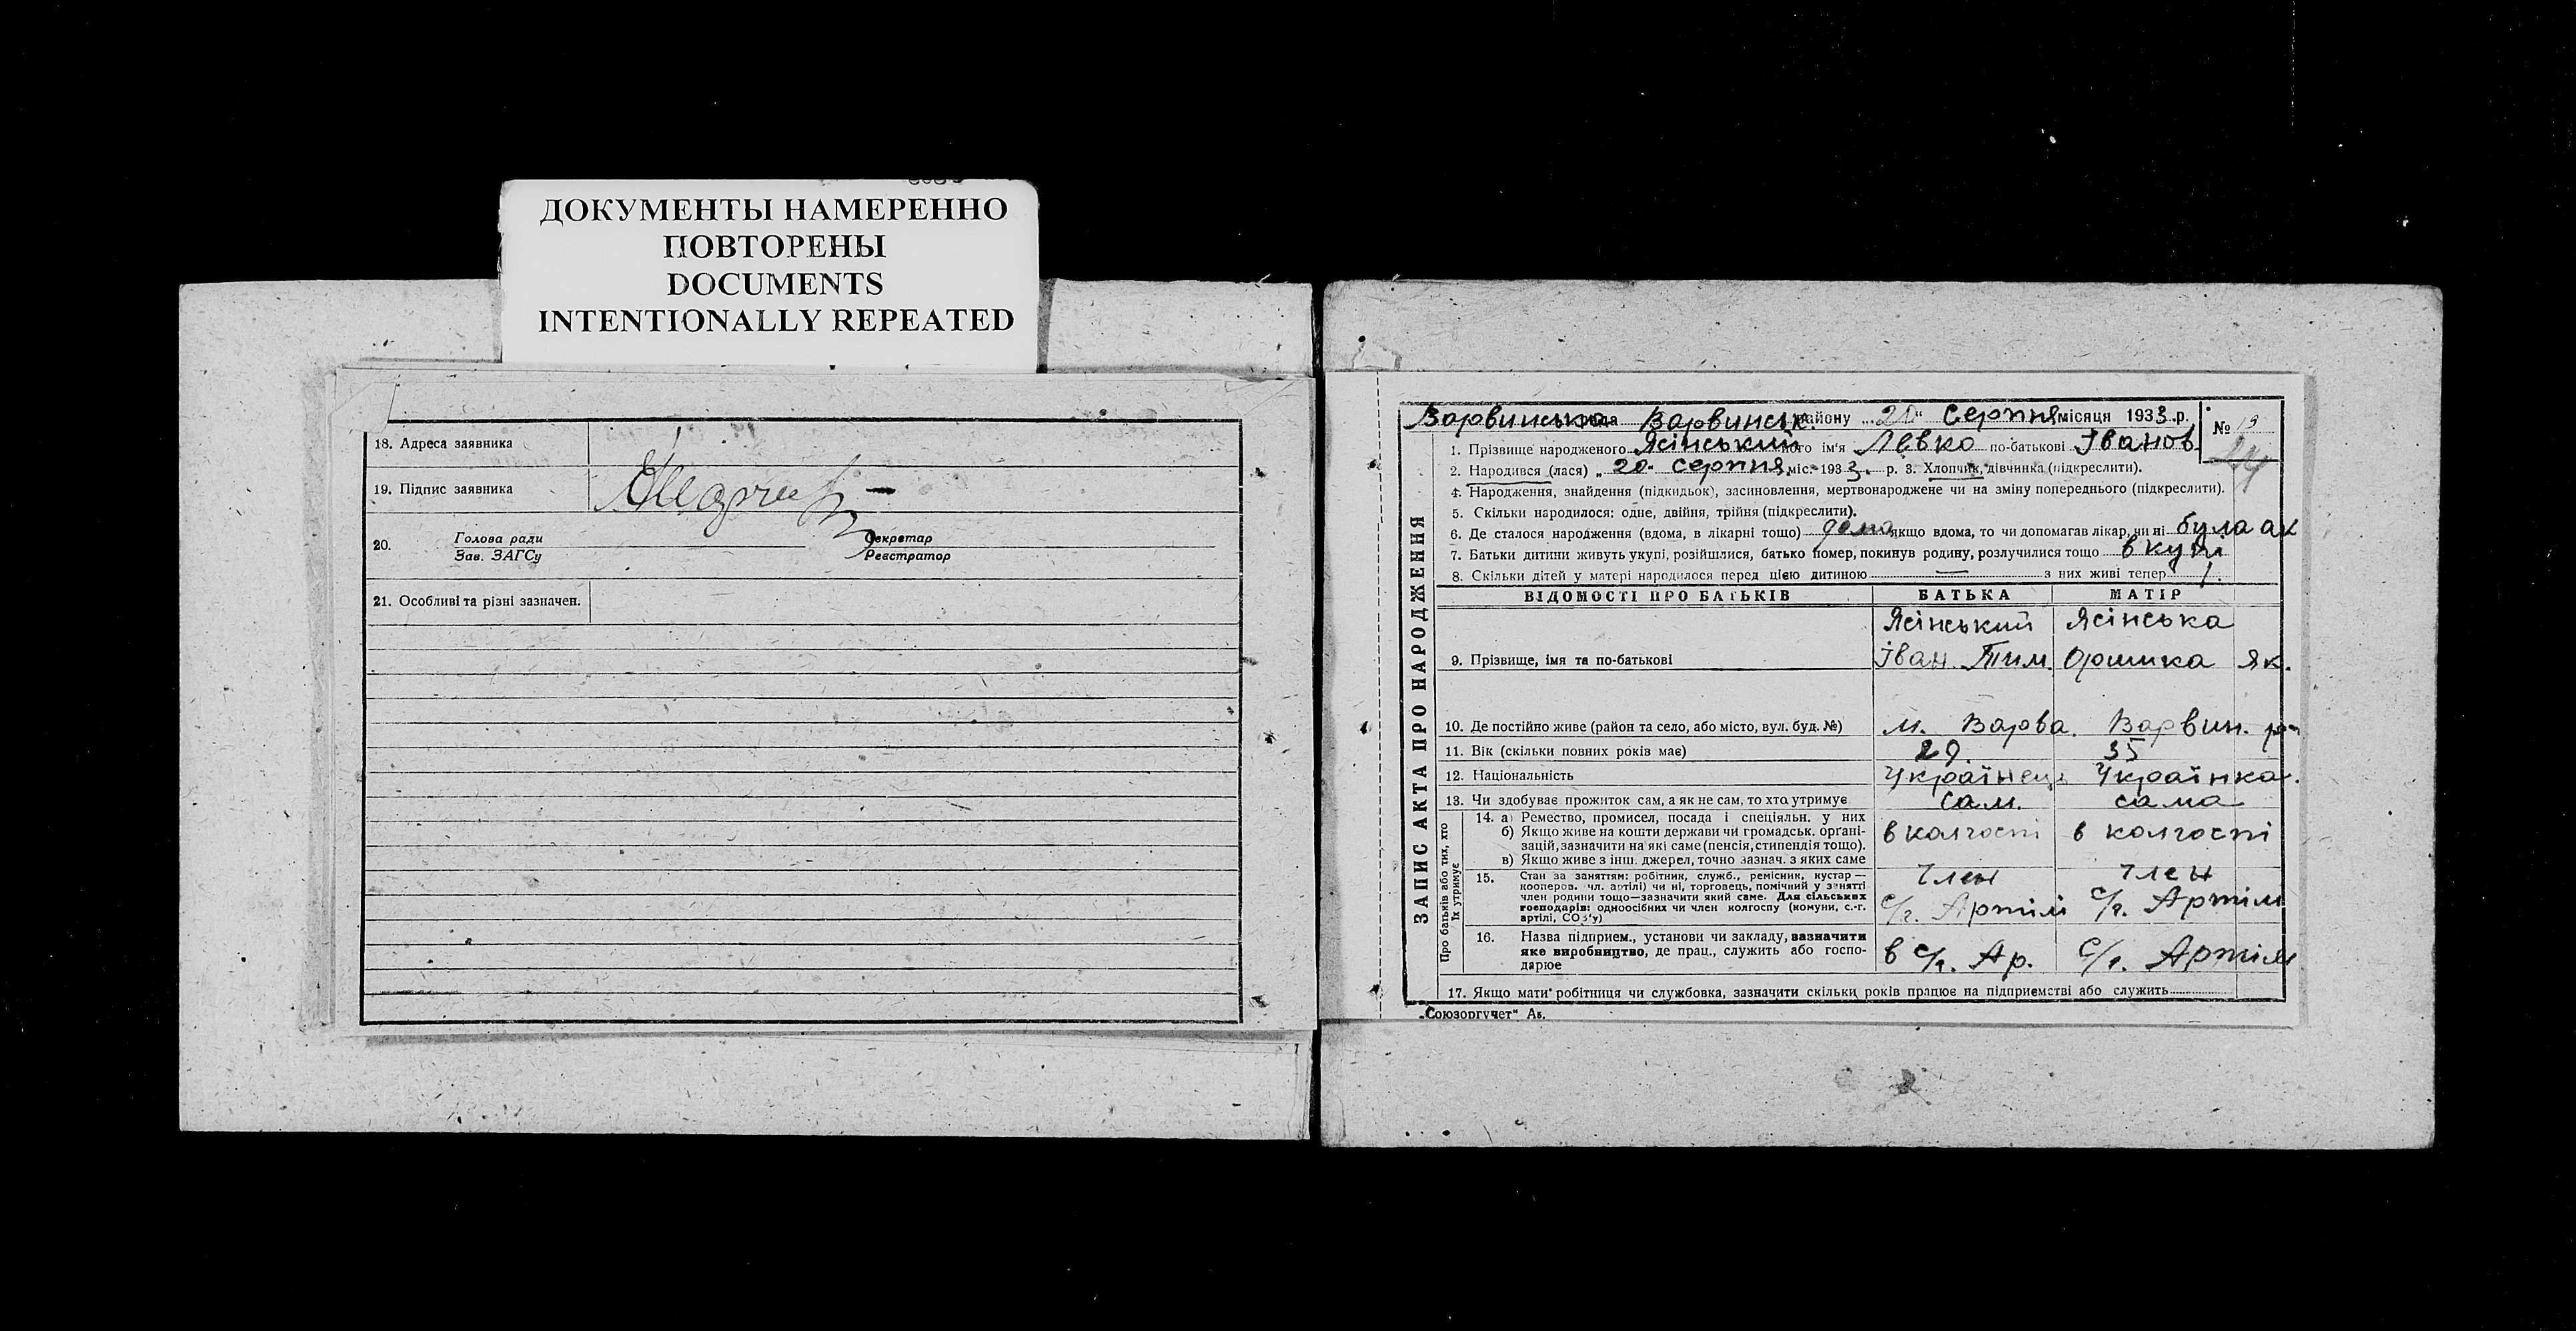 ДОКУМЕНТЫ НАМЕРЕННО
ПОВТОРЕНЫ
DOCUMENTS
INTENTIONALLY REPEATED
18. Адреса заявника
19. Підпис заявника
20. Голова ради Секретар
Зав. ЗАГСу Реєстратор
21. Особливі та різні зазначен.
ЗАПИС АКТА ПРО НАРОДЖЕННЯ
Варвинська рада Варвинськ. району „20“ Серпня місяця 1933 р.
№ 19
1. Прізвище народженого Ясінський його ім'я Левко по-батькові Іванов
2. Народився (лася) „20 серпня міс. 1933 р. 3. Хлопчик, дівчинка (підкреслити).
4. Народження, знайдення (підкидьок), засиновлення, мертвонароджене чи на зміну попереднього (підкреслити).
5. Скільки народилося: одне, двійня, трійня (підкреслити).
6. Де сталося народження (вдома, в лікарні тощо) дома якщо вдома, то чи допомагав лікар, чи ні була ак
7. Батьки дитини живуть укупі, розійшлися, батько помер, покинув родину, розлучилися тощо вкупі
8. Скільки дітей у матері народилося перед цією дитиною — з них живі тепер 1.
ВІДОМОСТІ ПРО БАТЬКІВ БАТЬКА МАТІР
Ясінський Ясінська
9. Прізвище, імя та по-батькові Іван Тим. Оришка Як.
10. Де постійно живе (район та село, або місто, вул. буд. №) м. Варва. Варвин. р-н
11. Вік (скільки повних років має) 29. 35
12. Національність Українець Українка.
13. Чи здобуває прожиток сам, а як не сам, то хто утримує сам. сама
Про батьків або тих, хто їх утримує
14. а) Ремество, промисел, посада і спеціяльн. у них
б) Якщо живе на кошти держави чи громадськ. органі- в колгоспі в колгоспі
зацій, зазначити на які саме (пенсія, стипендія тощо).
в) Якщо живе з інш. джерел, точно зазнач. з яких саме
15. Стан за заняттям: робітник, служб., ремісник, кустар — член член
кооперов. чл. артілі) чи ні, торговець, помічний у занятті
член родини тощо—зазначити який саме. Для сільських с/г. Артілі с/г. Артілі
господарів: одноосібних чи член колгоспу (комуни, с.-г.
артілі, СОЗ'у)
16. Назва підприєм., установи чи закладу, вазначити
яке виробництво, де прац., служить або госпо- в с/г. Ар. с/г. Артілі
дарює
17. Якщо мати робітниця чи службовка, зазначити скільки років працює на підприємстві або служить
„Союзоргучет“